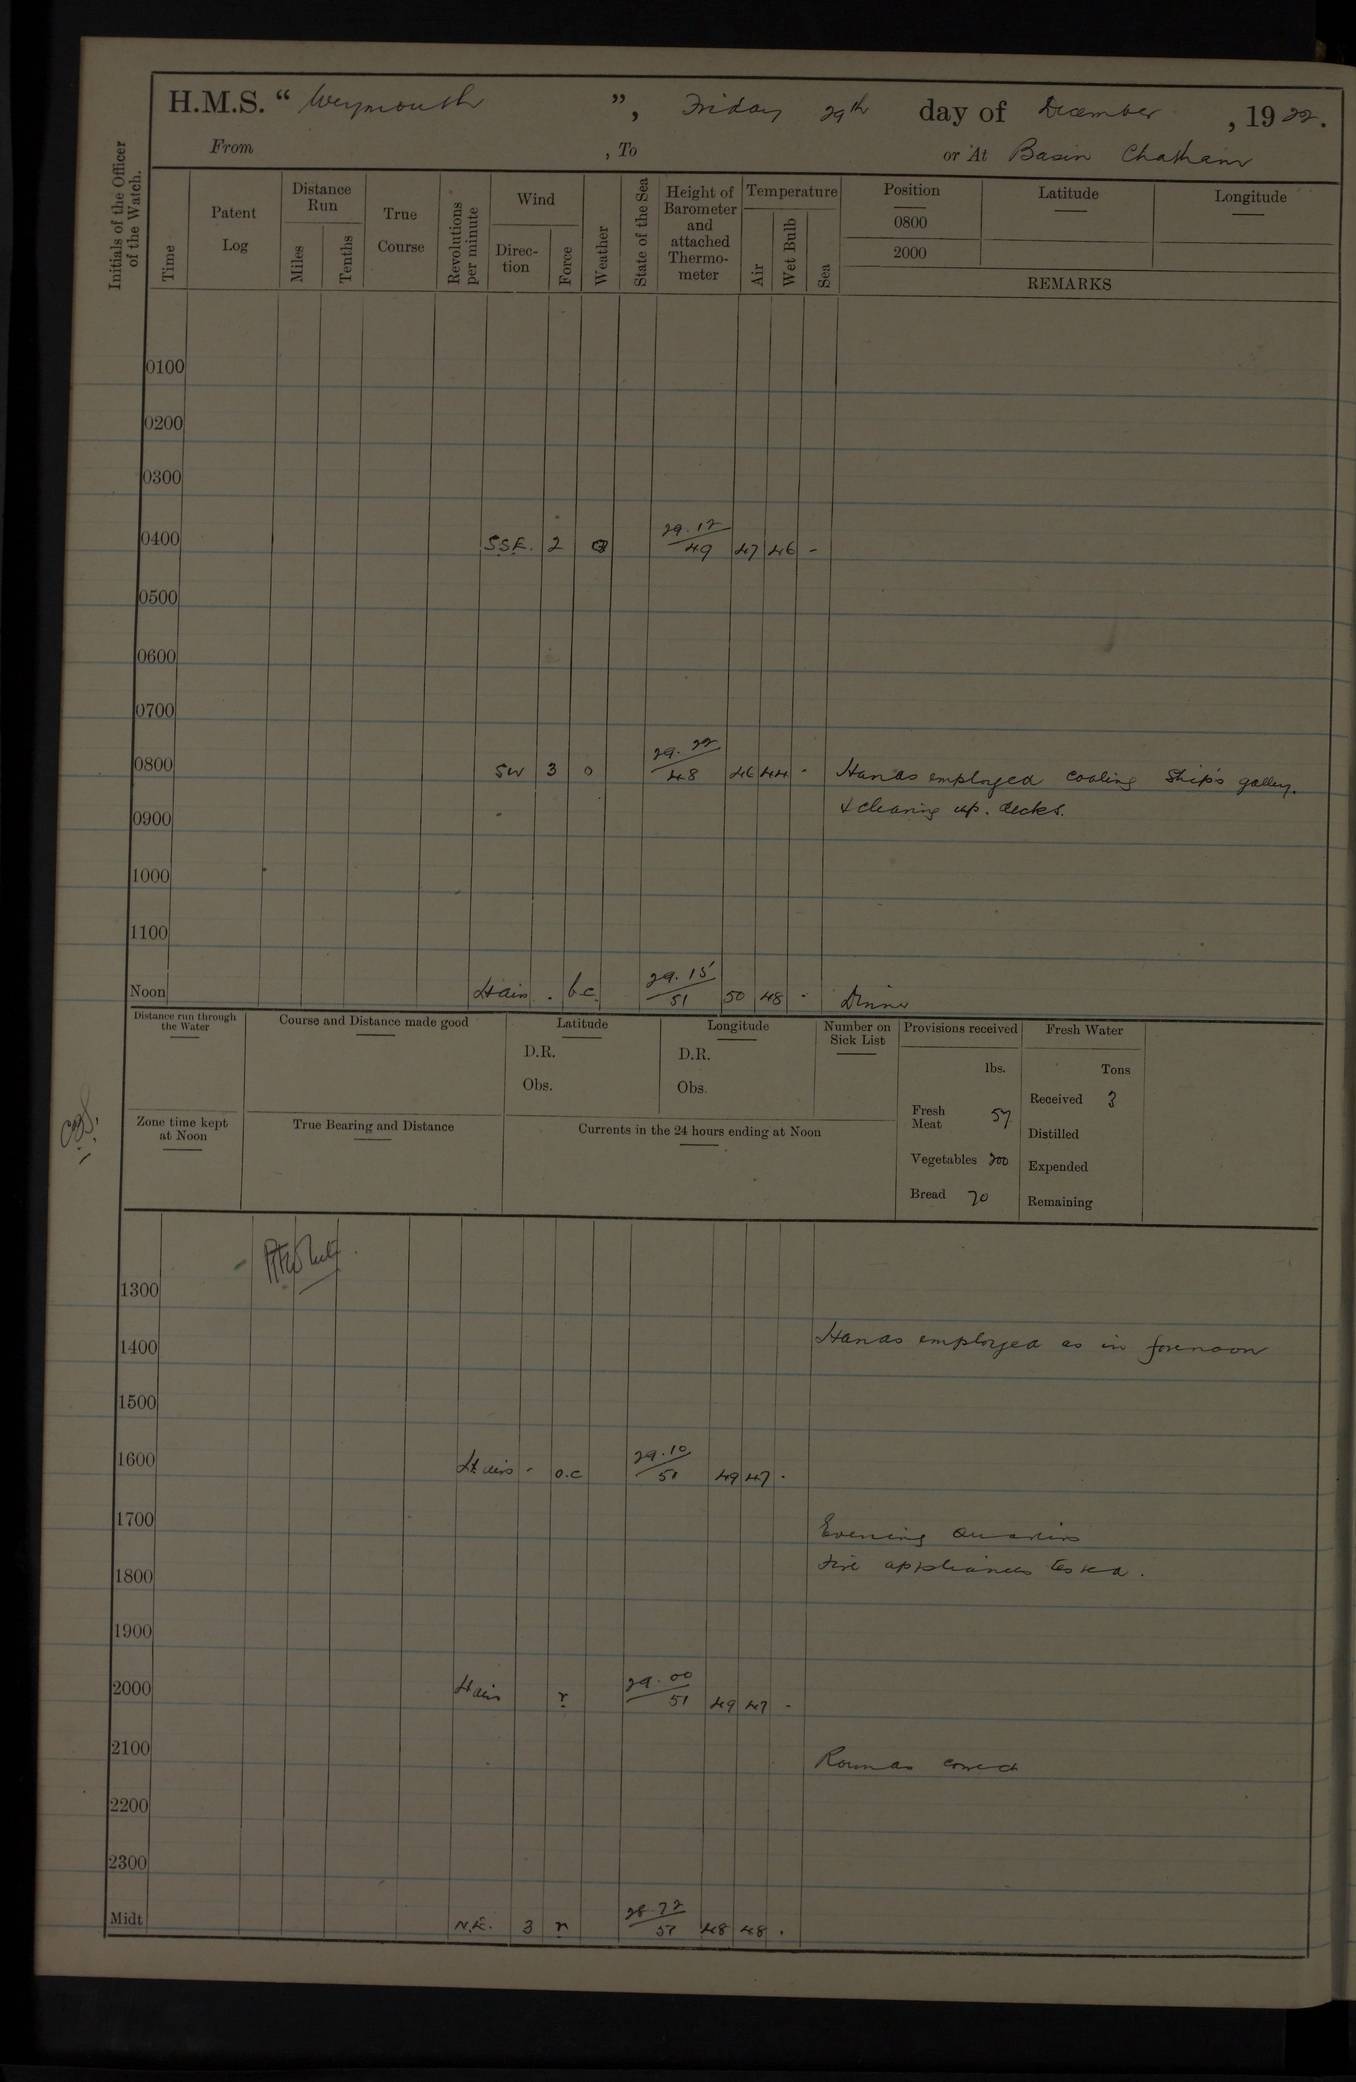 H.M.S. “ Weymouth ”, Friday 29th day of December, 1922.
From , To or At Basin Chatham
Initials of the Officer of the Watch.
Time
Patent Log
Distance Run
Miles
Tenths
True Course
Revolutions per minute
Wind
Direc-tion
Force
Weather
State of the Sea
Height of Barometer and attached Thermo-meter
Temperature
Air
Wet Bulb
Sea
Position Latitude Longitude
0800
2000
REMARKS
0100
0200
0300
0400 S.S.E. 2 29.12/49 47 46 -
0500
0600
0700
0800 SW 3 o 29.22/48 46 44 - Hands employed coaling ship's galley.
& cleaning up. decks.
0900
1000
1100
Noon Lt airs . b.c. 29.15/51 50 48 - Dinner
Distance run through the Water
Course and Distance made good
Latitude
D.R.
Obs.
Longitude
D.R.
Obs.
Number on Sick List
Provisions received
lbs.
Fresh Meat 57
Vegetables 200
Bread 70
Fresh Water
Tons
Received 3
Distilled
Expended
Remaining
Zone time kept at Noon
True Bearing and Distance
Currents in the 24 hours ending at Noon
1300
1400 Hands employed as in forenoon
1500
1600 Lt airs - o.c 29.10/51 49 47 -
1700 Evening Quarters
Fire appliances tested.
1800
1900
2000 Lt airs r 29.00/51 49 47 -
2100 Rounds correct
2200
2300
Midt N.E. 3 r 28.72/51 48 48 .